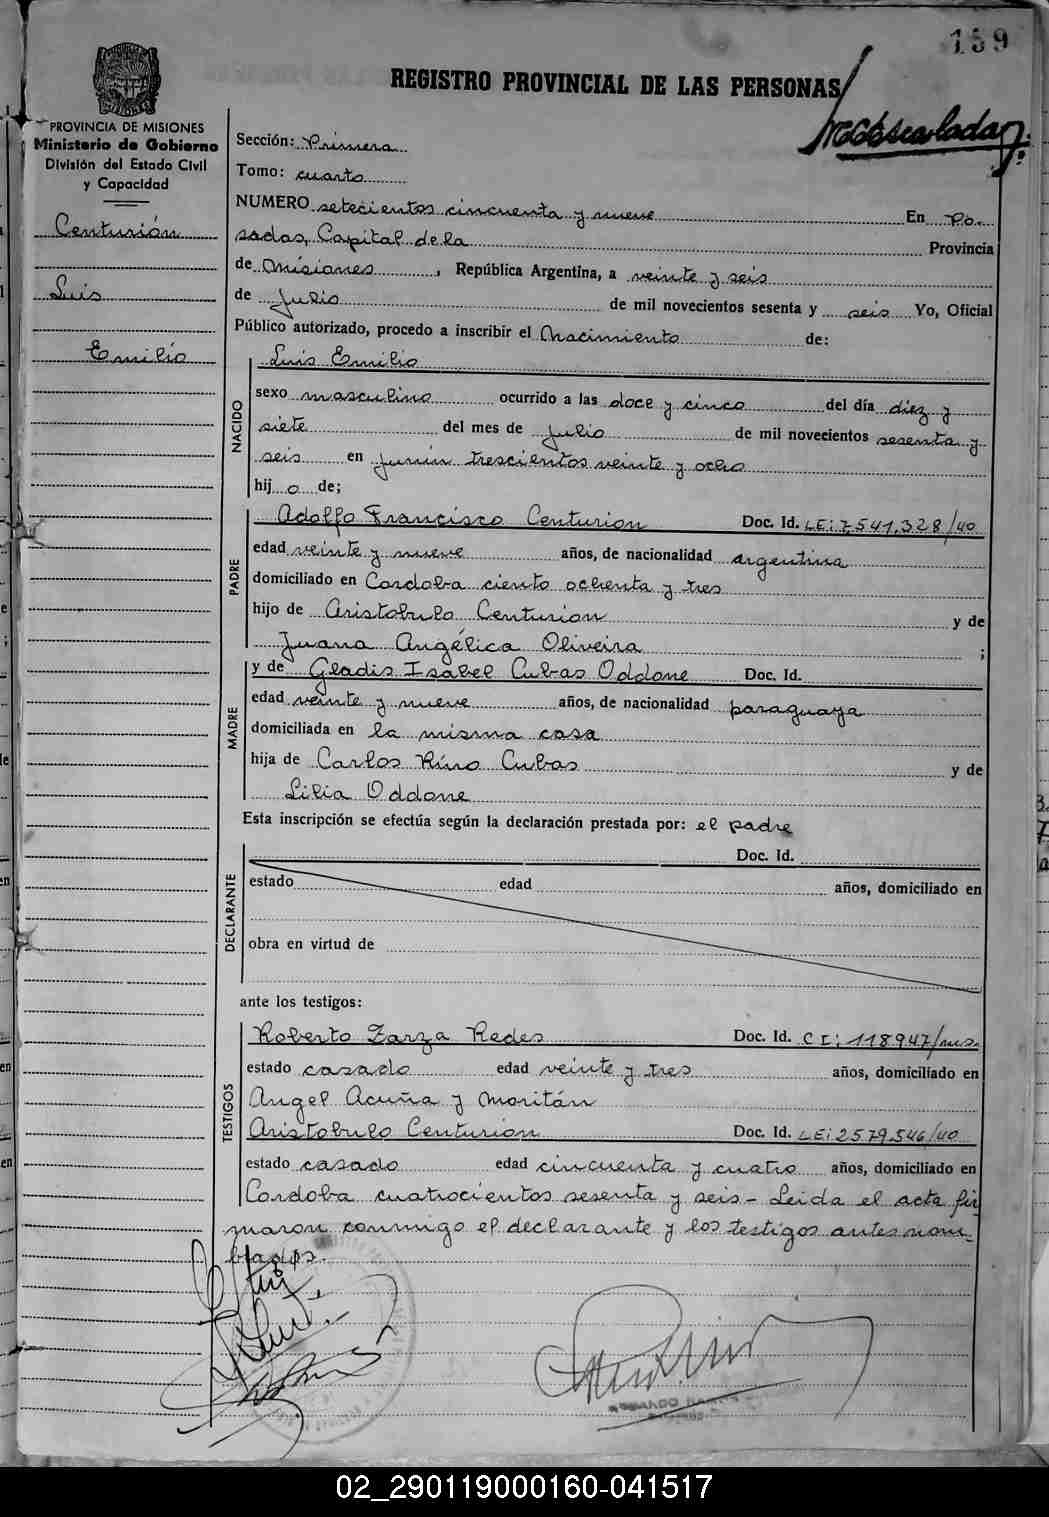 159
REGISTRO PROVINCIAL DE LAS PERSONAS
PROVINCIA DE MISIONES
Ministerio de Gobierno
División del Estado Civil
y Capacidad
Centurión
Luis
Emilio
Sección: Primera
Tomo: cuarto
NUMERO setecientos cincuenta y nueve En Po-
sadas, Capital de la Provincia
de Misiones, República Argentina, a veinte y seis
de Julio de mil novecientos sesenta y seis Yo, Oficial
Público autorizado, procedo a inscribir el Nacimiento de:
NACIDO
Luis Emilio
sexo masculino ocurrido a las doce y cinco del día diez y
siete del mes de julio de mil novecientos sesenta y
seis en Junín trescientos veinte y ocho
hijo de;
PADRE
Adolfo Francisco Centurion Doc. Id. LE: 7.541.328/40
edad veinte y nueve años, de nacionalidad argentina
domiciliado en Cordoba ciento ochenta y tres
hijo de Aristobulo Centurion y de
Juana Angélica Oliveira ;
MADRE
y de Gladis Isabel Cubas Oddone Doc. Id.
edad veinte y nueve años, de nacionalidad paraguaya
domiciliada en la misma casa
hija de Carlos Rino Cubas y de
Lilia Oddone
Esta inscripción se efectúa según la declaración prestada por: el padre
DECLARANTE
Doc. Id.
estado edad años, domiciliado en
obra en virtud de
ante los testigos:
TESTIGOS
Roberto Zarza Redes Doc. Id. C I: 118947/mis.
estado casado edad veinte y tres años, domiciliado en
Angel Acuña y Moritán
Aristobulo Centurion Doc. Id. LE: 2579.546/40
estado casado edad cincuenta y cuatro años, domiciliado en
Cordoba cuatrocientos sesenta y seis - Leida el acta fir
maron conmigo el declarante y los testigos antes nom-
brados.
02_290119000160-041517